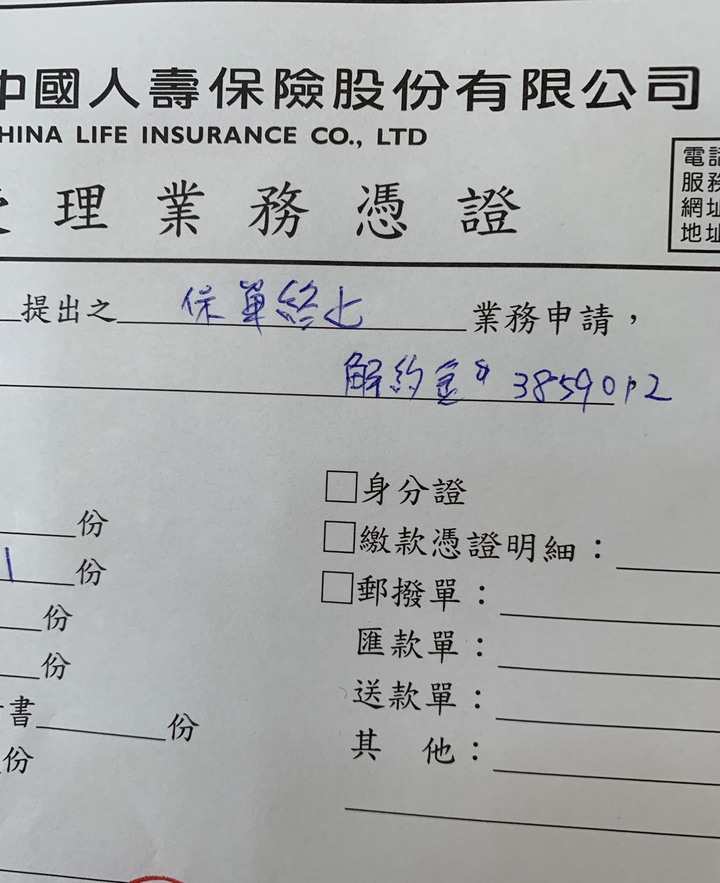 中國人壽保險股份有限公司
HINA LIFE INSURANCE CO., LTD
理業務憑證
電話
服務
網址
地址
提出之保單終止業務申請，
解約金$ 3859012
身分證
份
繳款憑證明細：
1份
郵撥單：
份
匯款單：
份
送款單：
書 份
其 他：
份